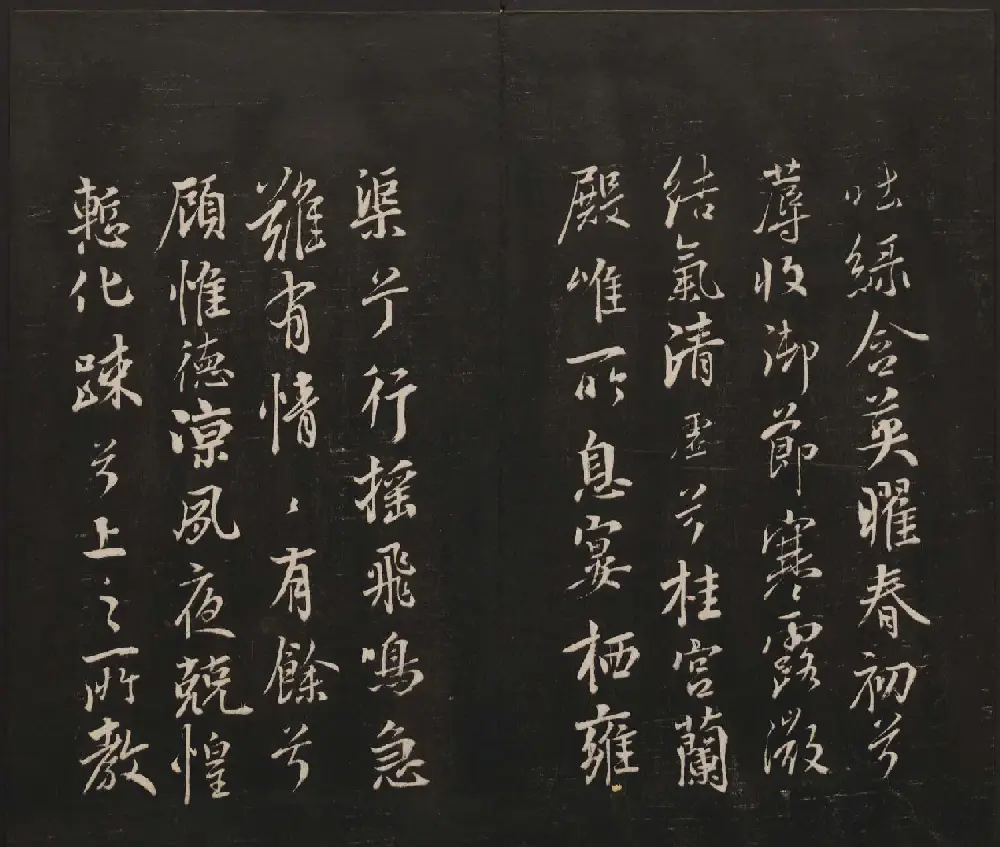 吐綠含英曜春初兮
蓐收御節寒露微
結氣清虛兮桂宮蘭
殿唯所息宴栖雍
渠兮行搖飛鳴急
難有情〻有餘兮
顧惟德涼夙夜兢惶
慙化踈兮上之所教